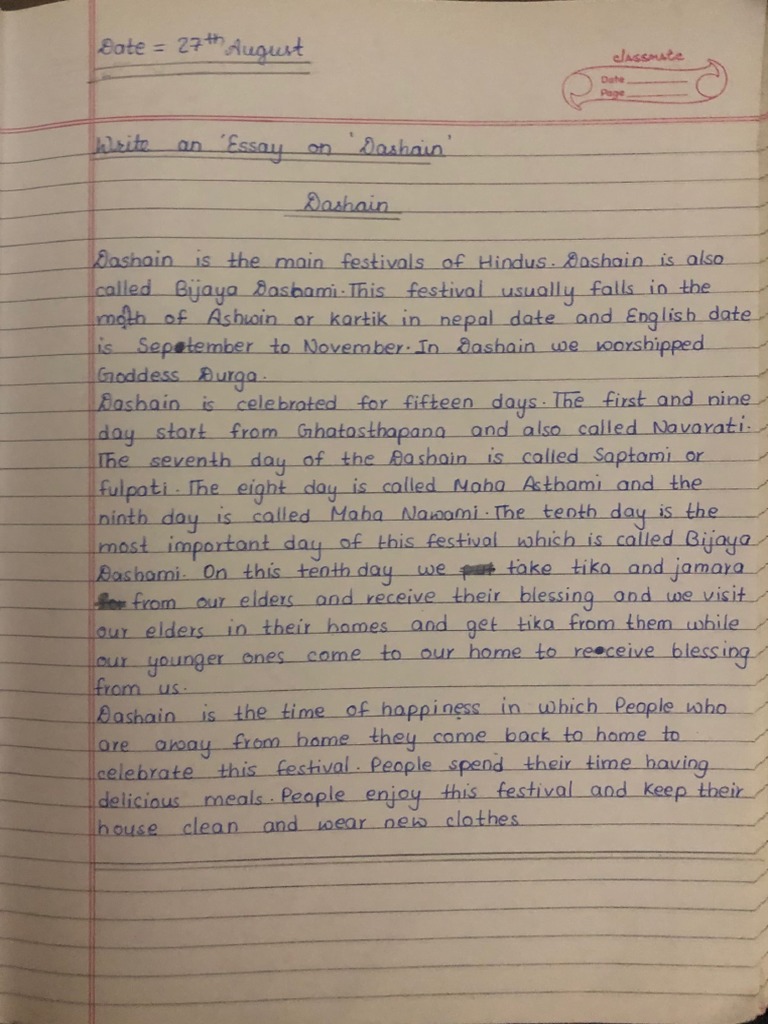 Date = 27th August
classmate
Date
Page
Write an 'Essay on 'Dashain'
Dashain
Dashain is the main festivals of Hindus. Dashain is also
called Bijaya Dashami. This festival usually falls in the
moth of Ashwin or kartik in nepal date and English date
is September to November. In Dashain we worshipped
Goddess Durga.
Dashain is celebrated for fifteen days. The first and nine
day start from Ghatasthapana and also called Navarati.
The seventh day of the Dashain is called Saptami or
fulpati. The eight day is called Maha Asthami and the
ninth day is called Maha Nawami. The tenth day is the
most important day of this festival which is called Bijaya
Dashami. On this tenth day we take tika and jamara
from our elders and receive their blessing and we visit
our elders in their homes and get tika from them while
our younger ones come to our home to receive blessing
from us.
Dashain is the time of happiness in which People who
are away from home they come back to home to
celebrate this festival. People spend their time having
delicious meals. People enjoy this festival and keep their
house clean and wear new clothes